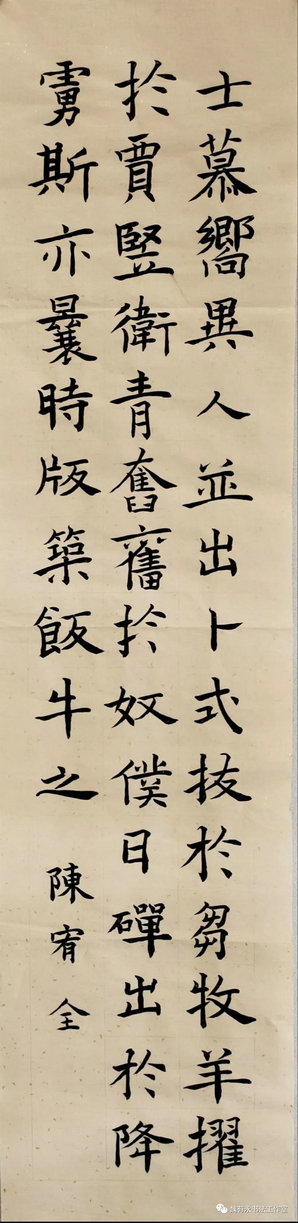 士慕嚮異人並出卜式拔於芻牧羊擢
於賈豎衛青奮舊於奴僕日磾出於降
虜斯亦曩時版築飯牛之
陳宥全
书法工作室